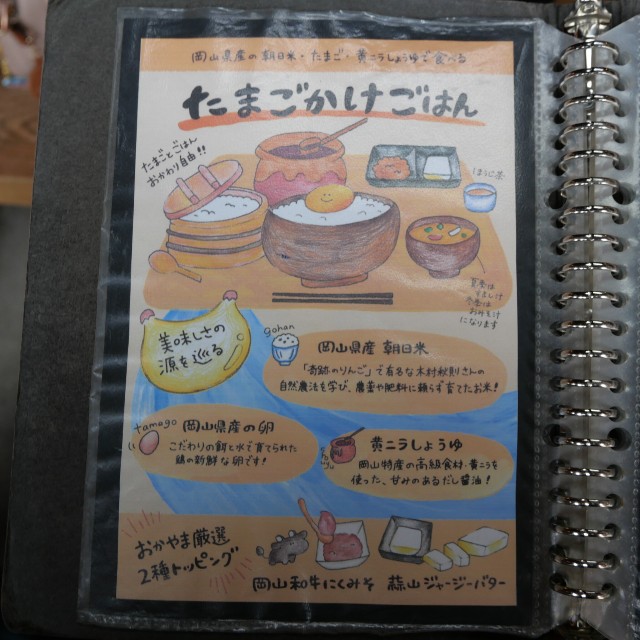 岡山県産の朝日米・たまご・黄ニラしょうゆで食べる
たまごかけごはん
たまごとごはん
おかわり自由!!
ほうじ茶
夏季は
そよしけ
冬季は
おみそ汁
になります
美味しさの
源を巡る
gohan
岡山県産 朝日米
「奇跡のりんご」で有名な木村秋則さんの
自然農法を学び、農薬や肥料に頼らず育てたお米!
tamago
岡山県産の卵
こだわりの餌と水で育てられた
鶏の新鮮な卵です!
黄ニラしょうゆ
岡山特産の高級食材・黄ニラを
使った、甘みのあるだし醤油!
おかやま厳選
2種トッピング
岡山和牛にくみそ 蒜山ジャージーバター